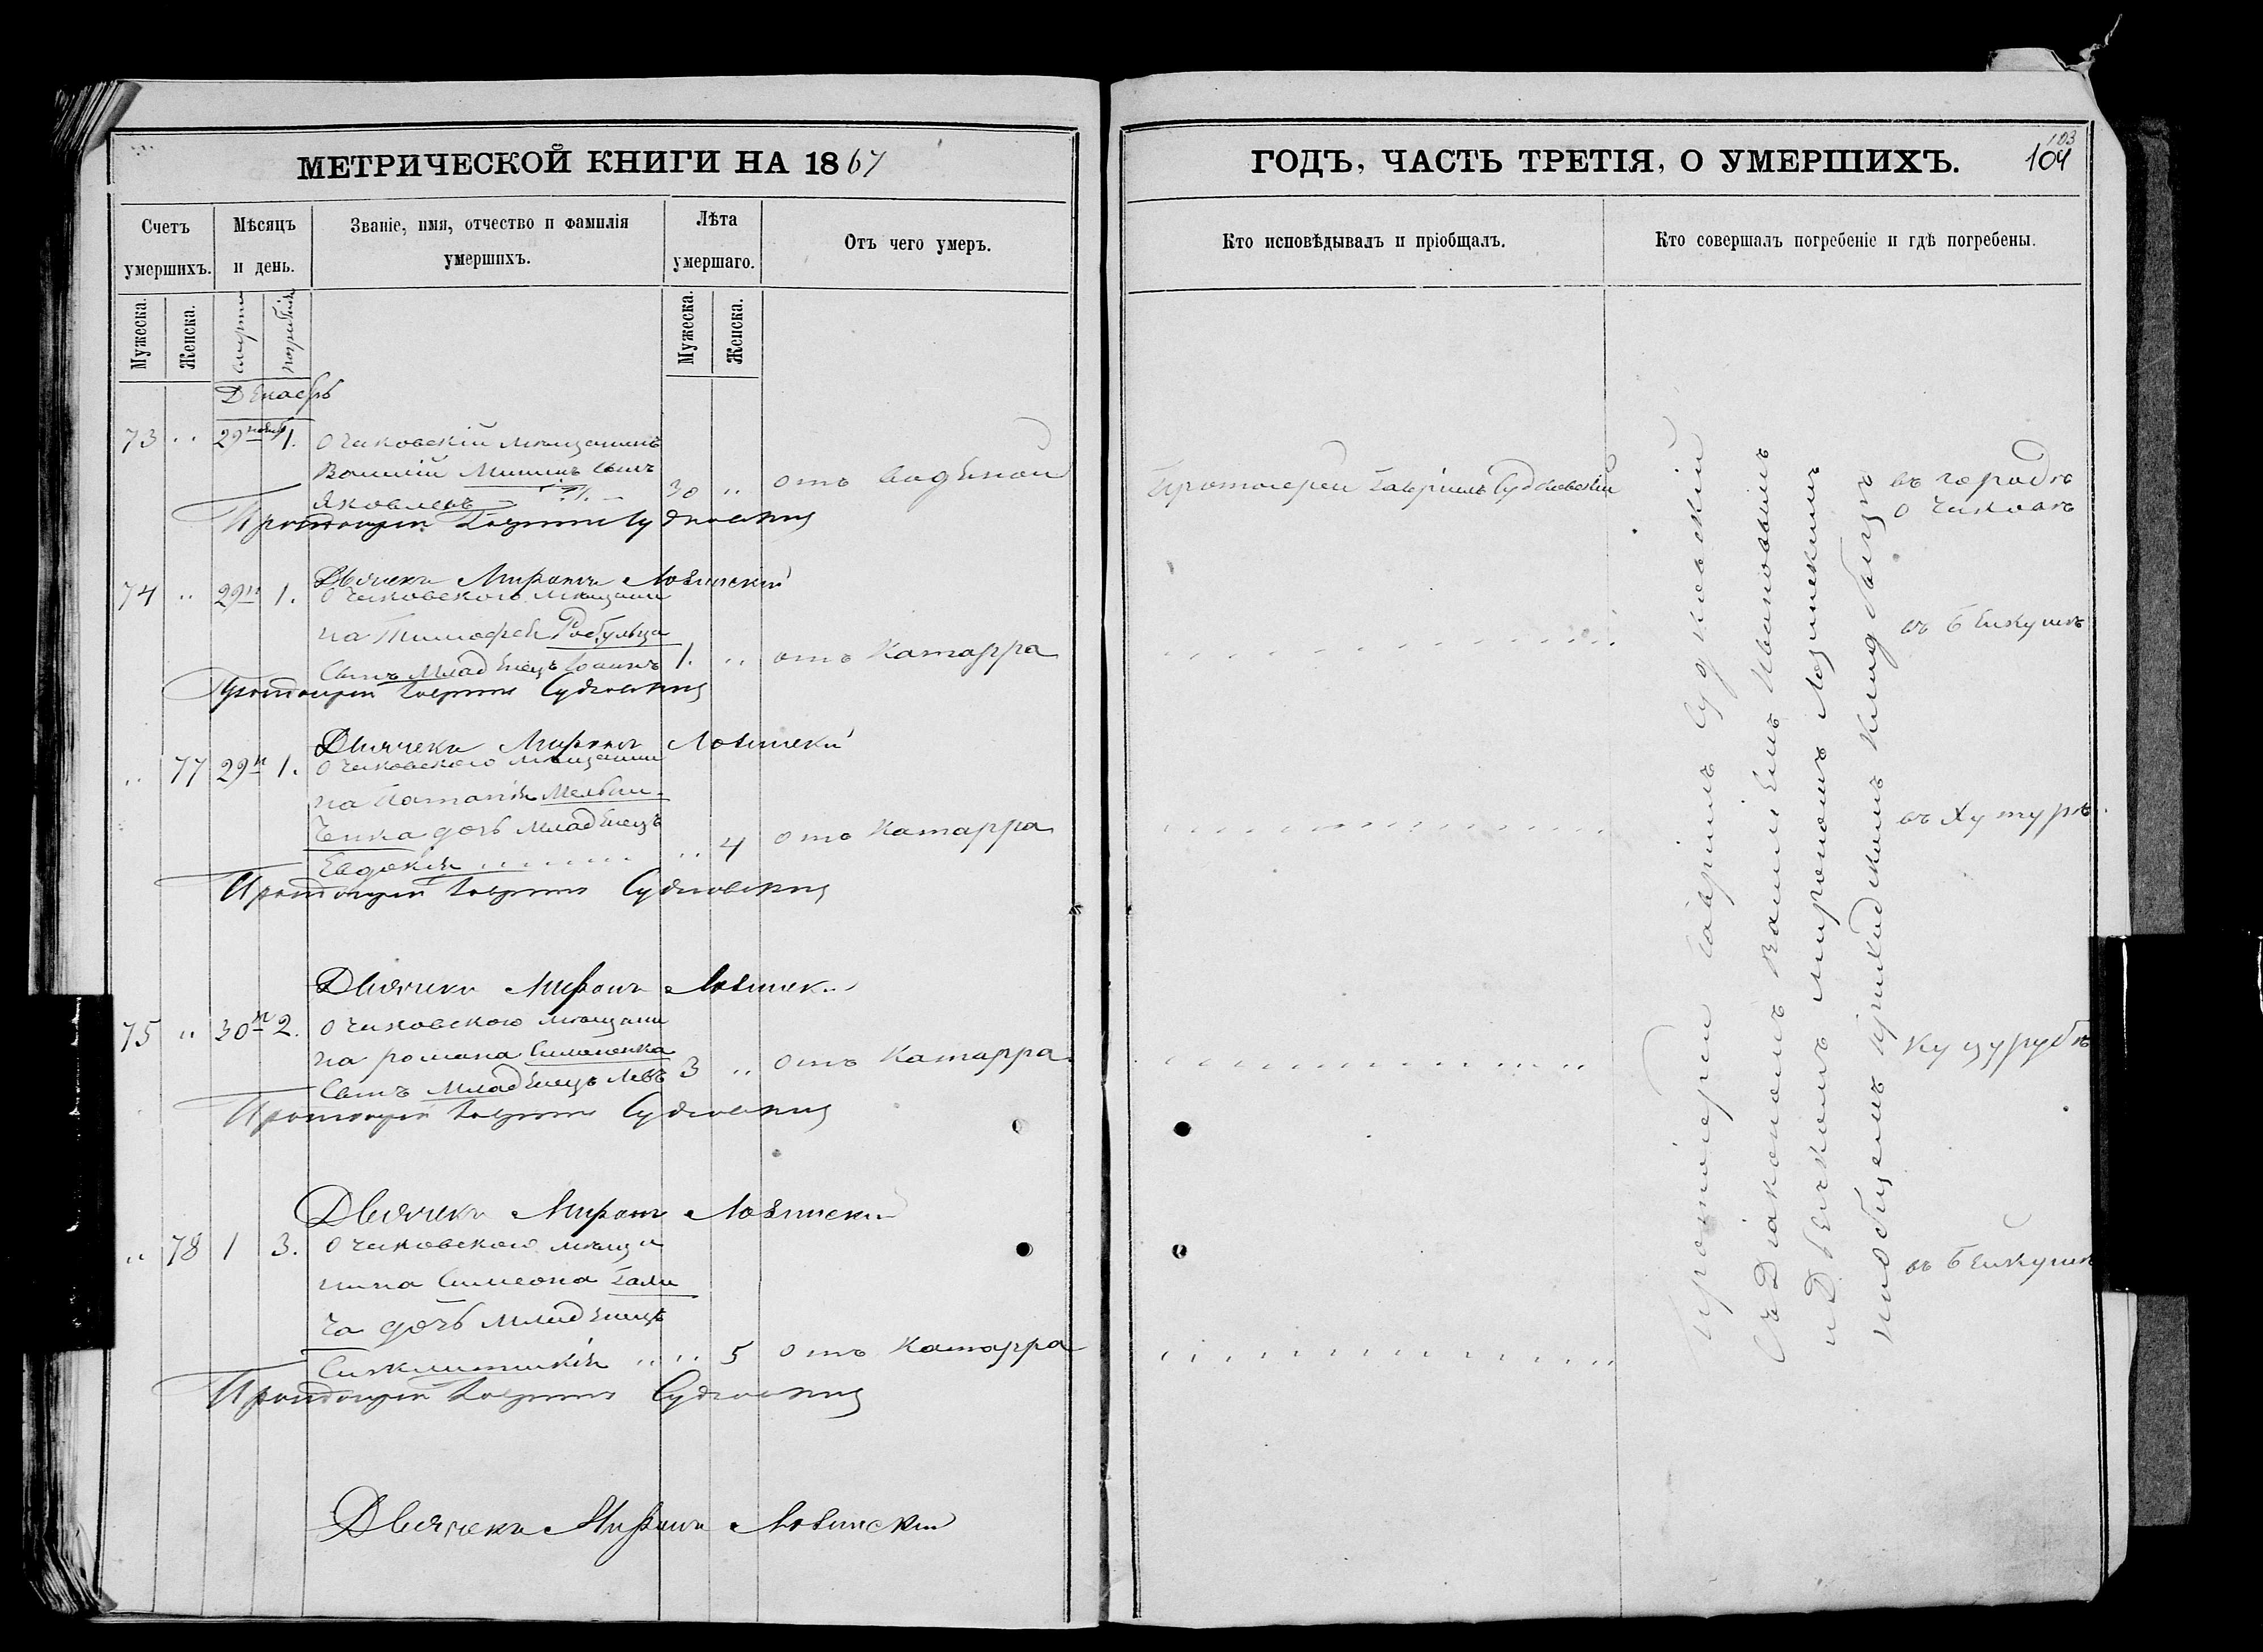 МЕТРИЧЕСКОЙ КНИГИ НА 1867
ГОДЪ, ЧАСТЬ ТРЕТІЯ, О УМЕРШИХЪ.
103
104
Счетъ умершихъ.
Мѣсяцъ и день.
Званіе, имя, отчество и фамилія умершихъ.
Лѣта умершаго.
Отъ чего умеръ.
Кто исповѣдывалъ и пріобщалъ.
Кто совершалъ погребеніе и гдѣ погребены.
Мужеска.
Женска.
смерти
погребенія
Мужеска.
Женска.
Декабрь
73 " 29 ноября 1. Очаковскій мѣщанинъ
Василій Мининъ сынъ
Яковлевъ 30 " отъ водяной
Протоіерей Гавріилъ Судковскій
въ городѣ
Очаковѣ
Протоіерей Гавріилъ Судковскій
Дьячекъ Миронъ Лозинскій
74 " 29 н 1. Очаковскаго мѣщани
на Тимофея
сынъ младенецъ Іоаннъ 1. " отъ Катарра
въ Бейкушѣ
Протоіерей Гавріилъ Судковскій
Дьячекъ Миронъ Лозинскій
" 77 29 н 1. Очаковскаго мѣщани
на Потапія Мельни-
ченка дочь младенецъ
Евдокія " 4 отъ Катарра
въ Хуторѣ.
Протоіерей Гавріилъ Судковскій
Дьячекъ Миронъ Лозинскій
75 " 30 н 2. Очаковскаго мѣщани
на Романа Симоненка
сынъ младенецъ Левъ 3 " отъ Катарра
Куцурубѣ
Протоіерей Гавріилъ Судковскій
Дьячекъ Миронъ Лозинскій
" 78 1 3. Очаковскаго мѣща
нина Симеона Гали
ча дочь младенецъ
Сигклитикія " 5 отъ Катарра
въ Бейкушѣ
Протоіерей Гавріилъ Судковскій
Дьячекъ Миронъ Лозинскій
Протоіерей Гавріилъ Судковскій
Съ Діакономъ Василіемъ Ивановымъ
и Дьячкомъ Мирономъ Лозинскимъ
на общемъ приходскомъ кладбищѣ